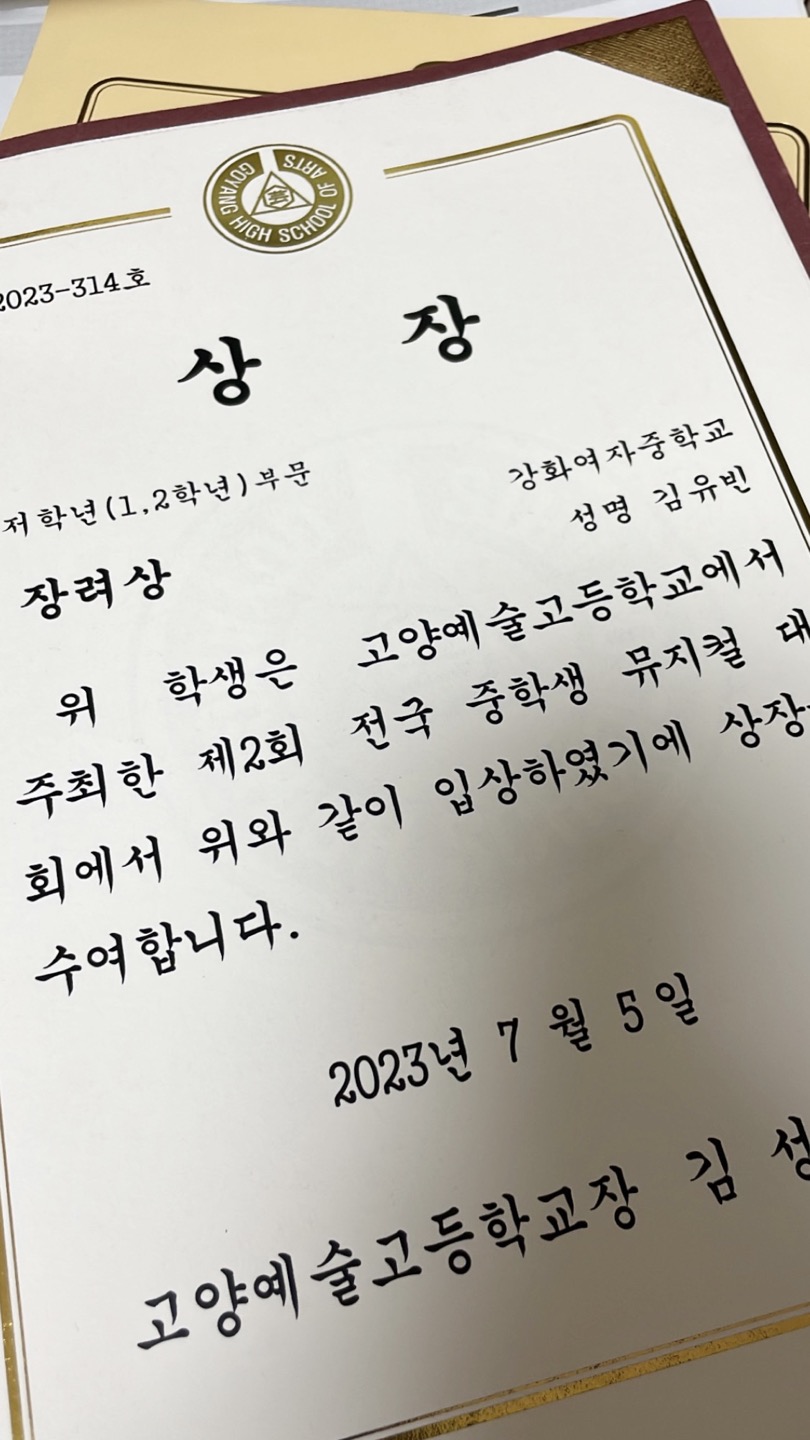 GOYANG HIGH SCHOOL OF ARTS
2023-314호
상 장
저학년(1,2학년)부문
강화여자중학교
성명 김유빈
장려상
위 학생은 고양예술고등학교에서
주최한 제2회 전국 중학생 뮤지컬 대
회에서 위와 같이 입상하였기에 상장
수여합니다.
2023년 7월 5일
고양예술고등학교장 김 성